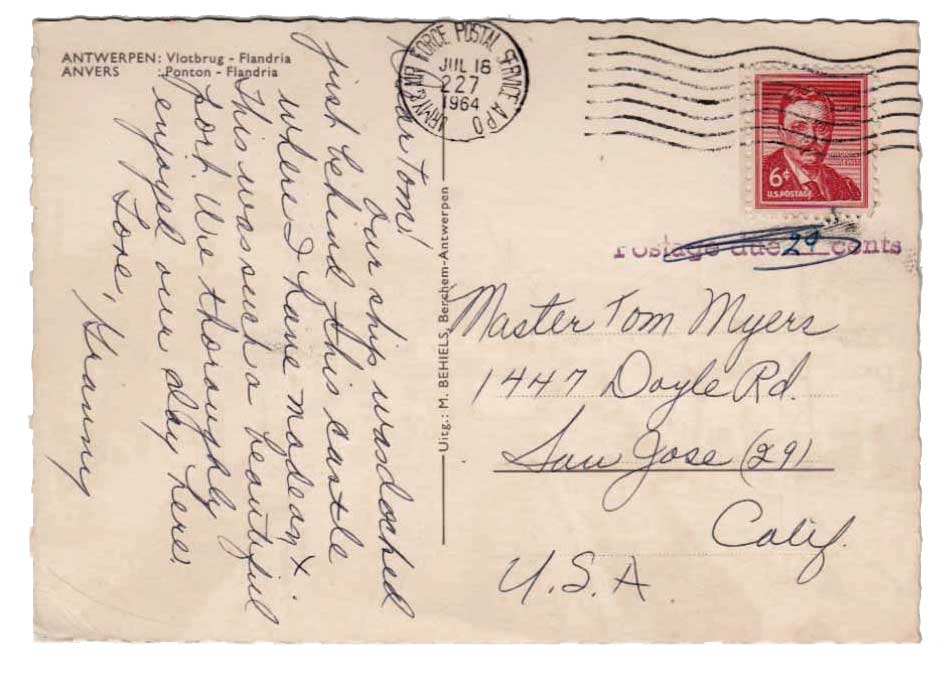 ANTWERPEN: Vlotbrug - Flandria
ANVERS : Ponton - Flandria
Dear Tom!
Our ship was doched
just behind this castle
where I have made an X.
This was such a beautiful
port. We thoroughly
enjoyed our day here!
Love, Granny
Uitg.: M. BEHIELS, Berchem-Antwerpen
ARMY & AIR FORCE POSTAL SERVICE APO
JUL 16
227
1964
ROOSEVELT
6¢
U.S. POSTAGE
Postage due 29 cents
Master Tom Myers
1447 Doyle Rd.
San Jose (29)
Calif.
U.S.A